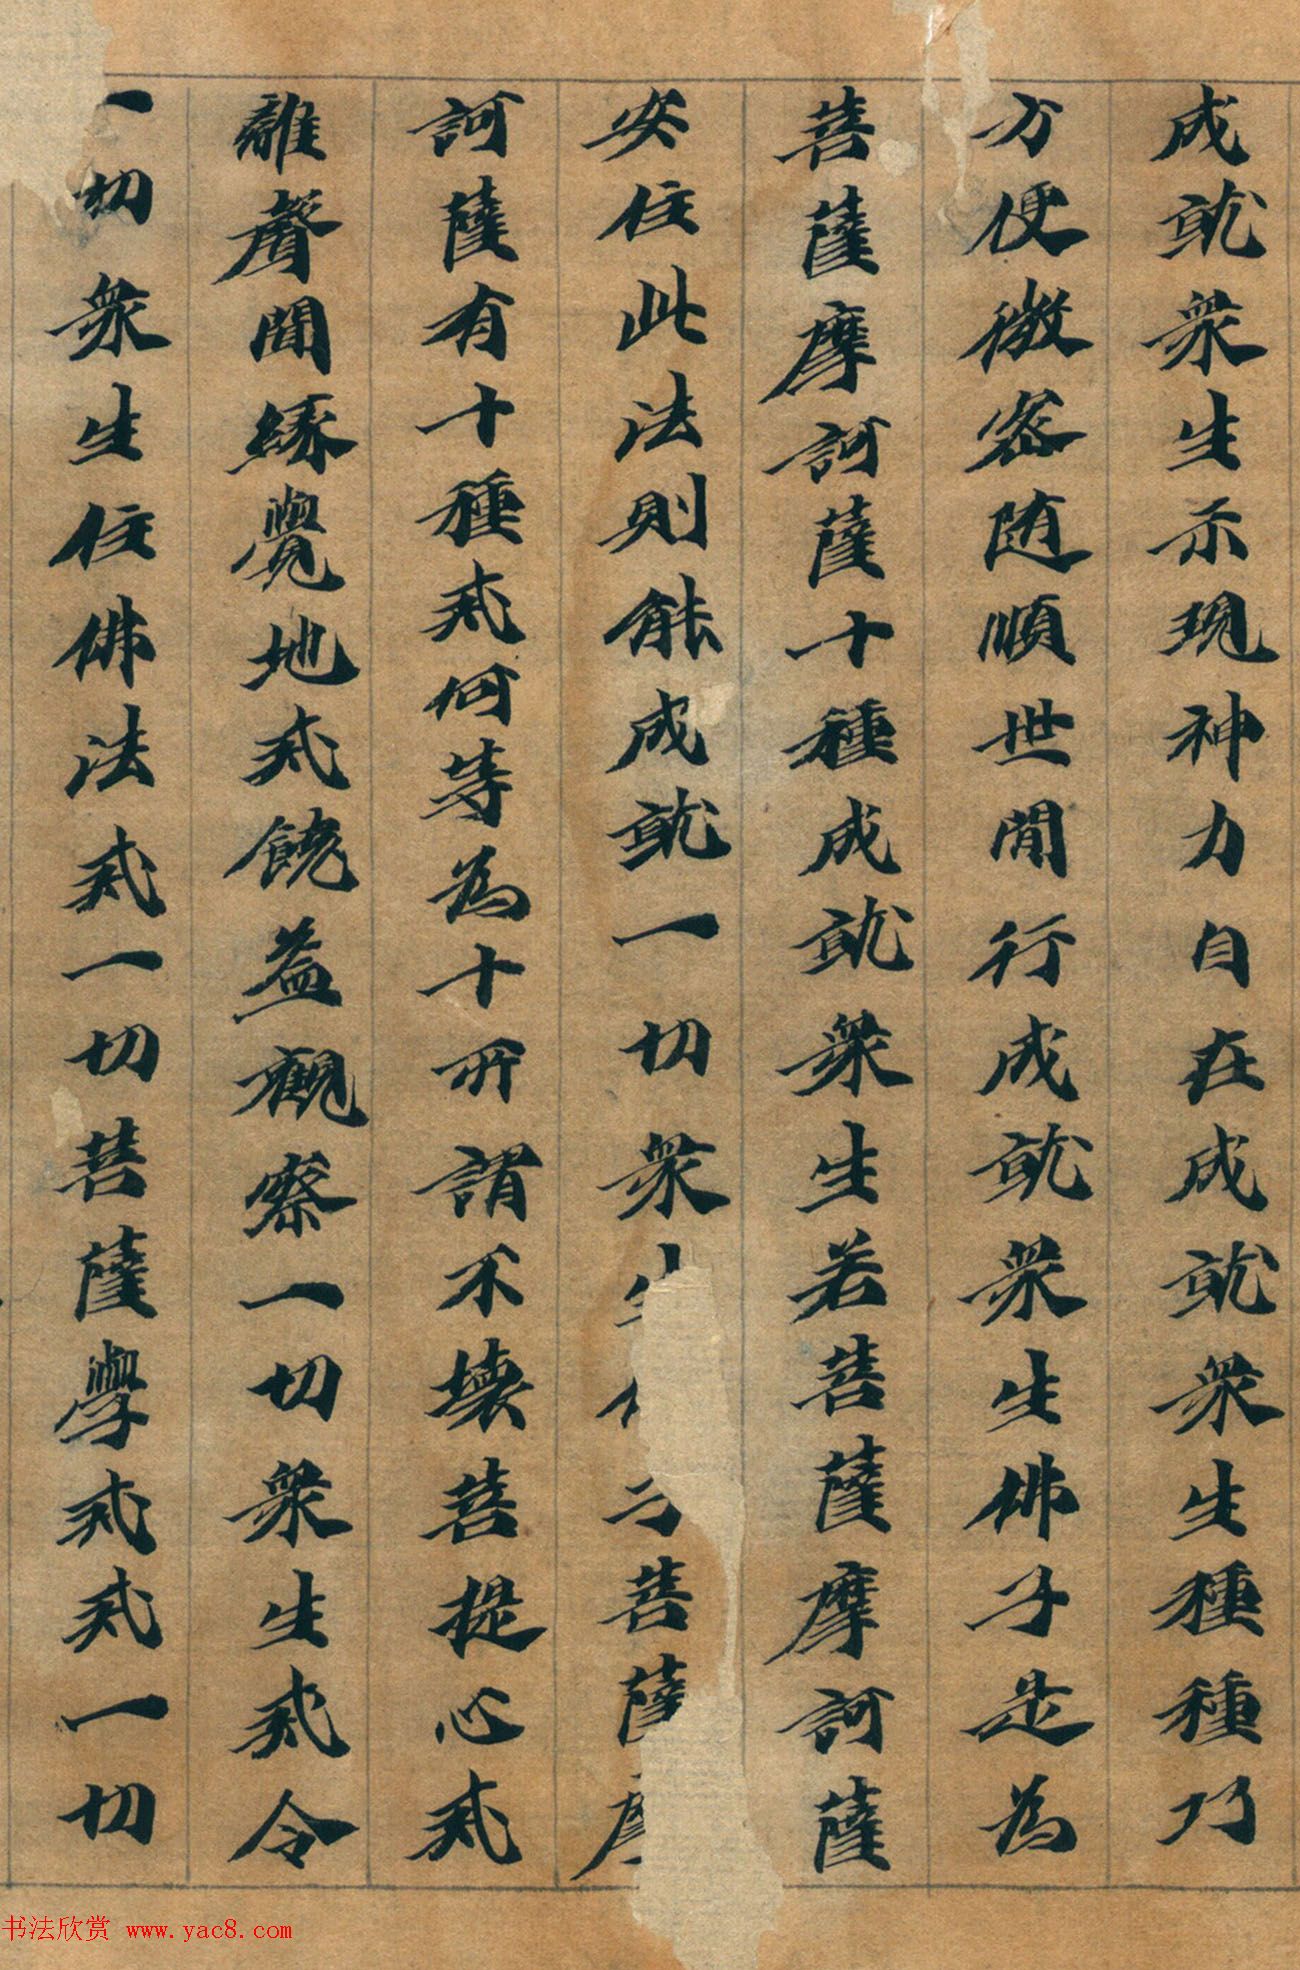 成就衆生示現神力自在成就衆生種種乃
方便微密随順世間行成就衆生佛子是為
菩薩摩訶薩十種成就衆生若菩薩摩訶薩
安住此法則能成就一切衆生子菩薩摩
訶薩有十種戒何等為十所謂不壞菩提心戒
離聲聞緣覺地戒饒益觀察一切衆生戒令
一切衆生住佛法戒一切菩薩學戒戒一切
书法欣赏 www.yac8.com